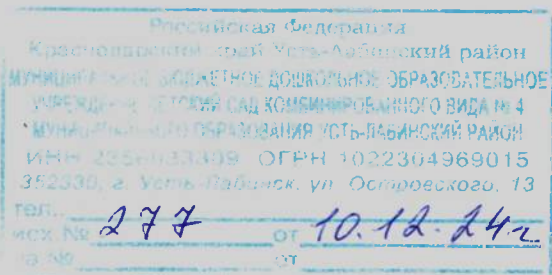 Российская Федерация
Краснодарский край Усть-Лабинский район
МУНИЦИПАЛЬНОЕ БЮДЖЕТНОЕ ДОШКОЛЬНОЕ ОБРАЗОВАТЕЛЬНОЕ
УЧРЕЖДЕНИЕ ДЕТСКИЙ САД КОМБИНИРОВАННОГО ВИДА № 4
МУНИЦИПАЛЬНОГО ОБРАЗОВАНИЯ УСТЬ-ЛАБИНСКИЙ РАЙОН
ИНН ОГРН 1022304969015
352330, г. Усть-Лабинск, ул. Островского, 13
тел.
исх. № 277 от 10.12.24г
на № от